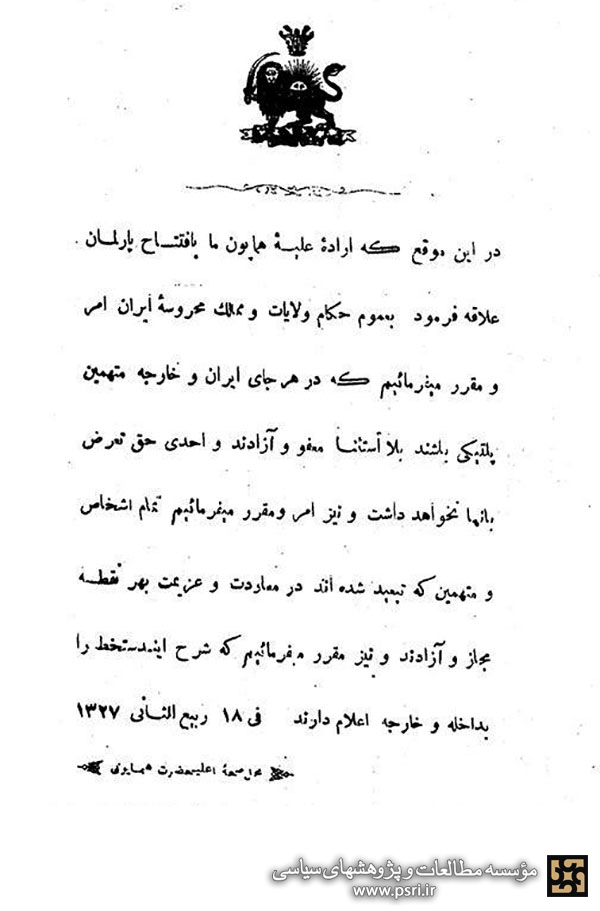 در این موقع که ارادهٔ علیهٔ همایون ما بافتتاح پارلمان
علاقه فرمود بعموم حکام ولایات و ممالک محروسهٔ ایران امر
و مقرر میفرمائیم که در هر جای ایران و خارجه متهمین
پلتیکی باشند بلا أستثنا معفو و آزادند و احدی حق تعرض
بانها نخواهد داشت و نیز امر ومقرر میفرمائیم تمام اشخاص
و متهمین که تبعید شده اند در معاودت و عزیمت بهر نقطه
مجاز و آزادند و نیز مقرر میفرمائیم که شرح ایندستخط را
بداخله و خارجه اعلام دارند فی ۱۸ ربیع الثانی ۱۳۲۷
محل صحهٔ اعلیحضرت همایونی
مؤسسه مطالعات و پژوهشهای سیاسی
www.psri.ir